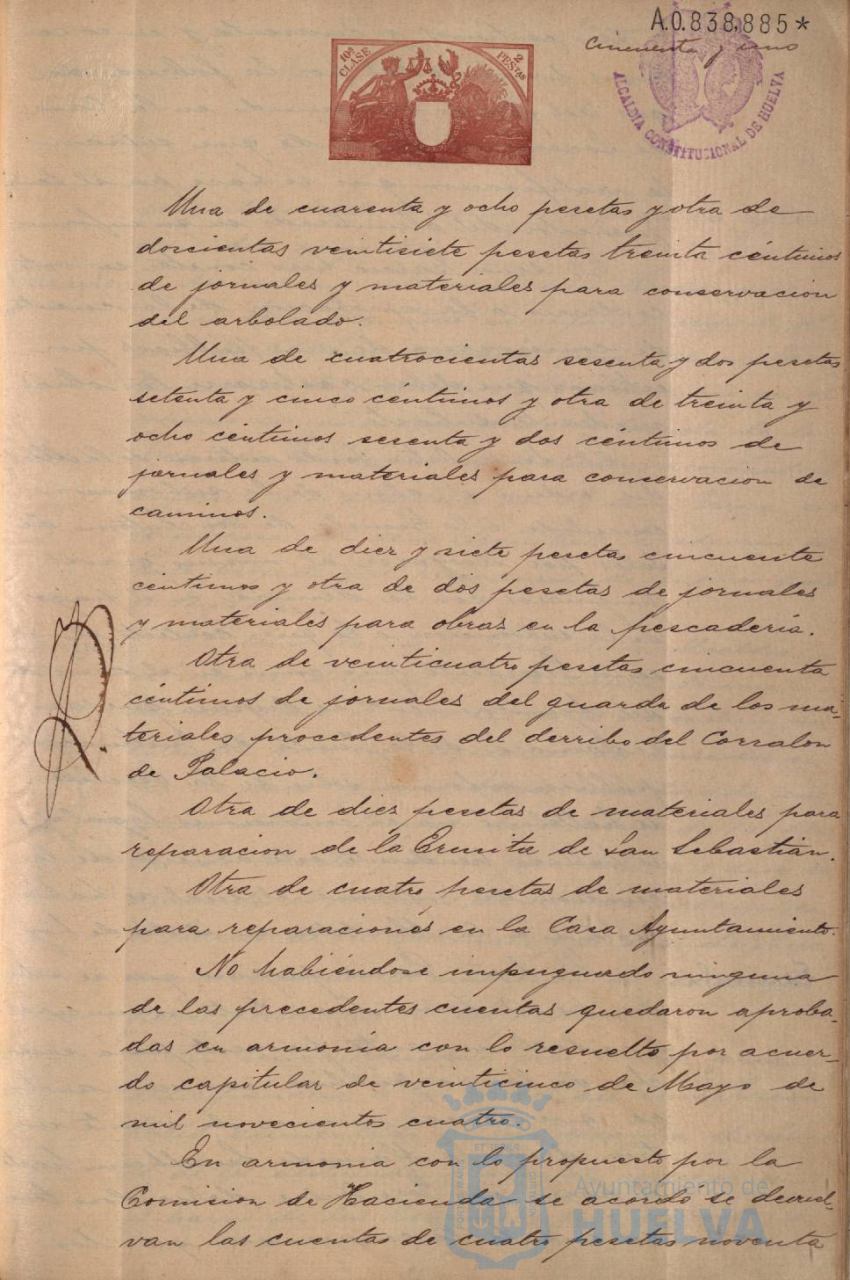 A.0.838,885*
cincuenta y uno
10ª CLASE
2 PESTAS
ALCALDIA CONSTITUCIONAL DE HUELVA
Una de cuarenta y ocho pesetas y otra de
doscientas veintisiete pesetas treinta céntimos
de jornales y materiales para conservacion
del arbolado.
Una de cuatrocientas sesenta y dos pesetas
setenta y cinco céntimos y otra de treinta y
ocho céntimos sesenta y dos céntimos de
jornales y materiales para conservacion de
caminos.
Una de diez y siete pesetas cincuenta
céntimos y otra de dos pesetas de jornales
y materiales para obras en la pescadería.
Otra de veinticuatro pesetas cincuenta
céntimos de jornales del guarda de los ma-
teriales procedentes del derribo del Corralon
de Palacio.
Otra de diez pesetas de materiales para
reparacion de la Ermita de San Sebastián.
Otra de cuatro pesetas de materiales
para reparaciones en la Casa Ayuntamiento.
No habiéndose impugnado ninguna
de las precedentes cuentas quedaron aproba-
das en armonía con lo resuelto por acuer-
do capitular de veinticinco de Mayo de
mil novecientos cuatro.
En armonia con lo propuesto por la
Comision de Hacienda se acordó se devuel-
van las cuentas de cuatro pesetas noventa
Ayuntamiento de
HUELVA